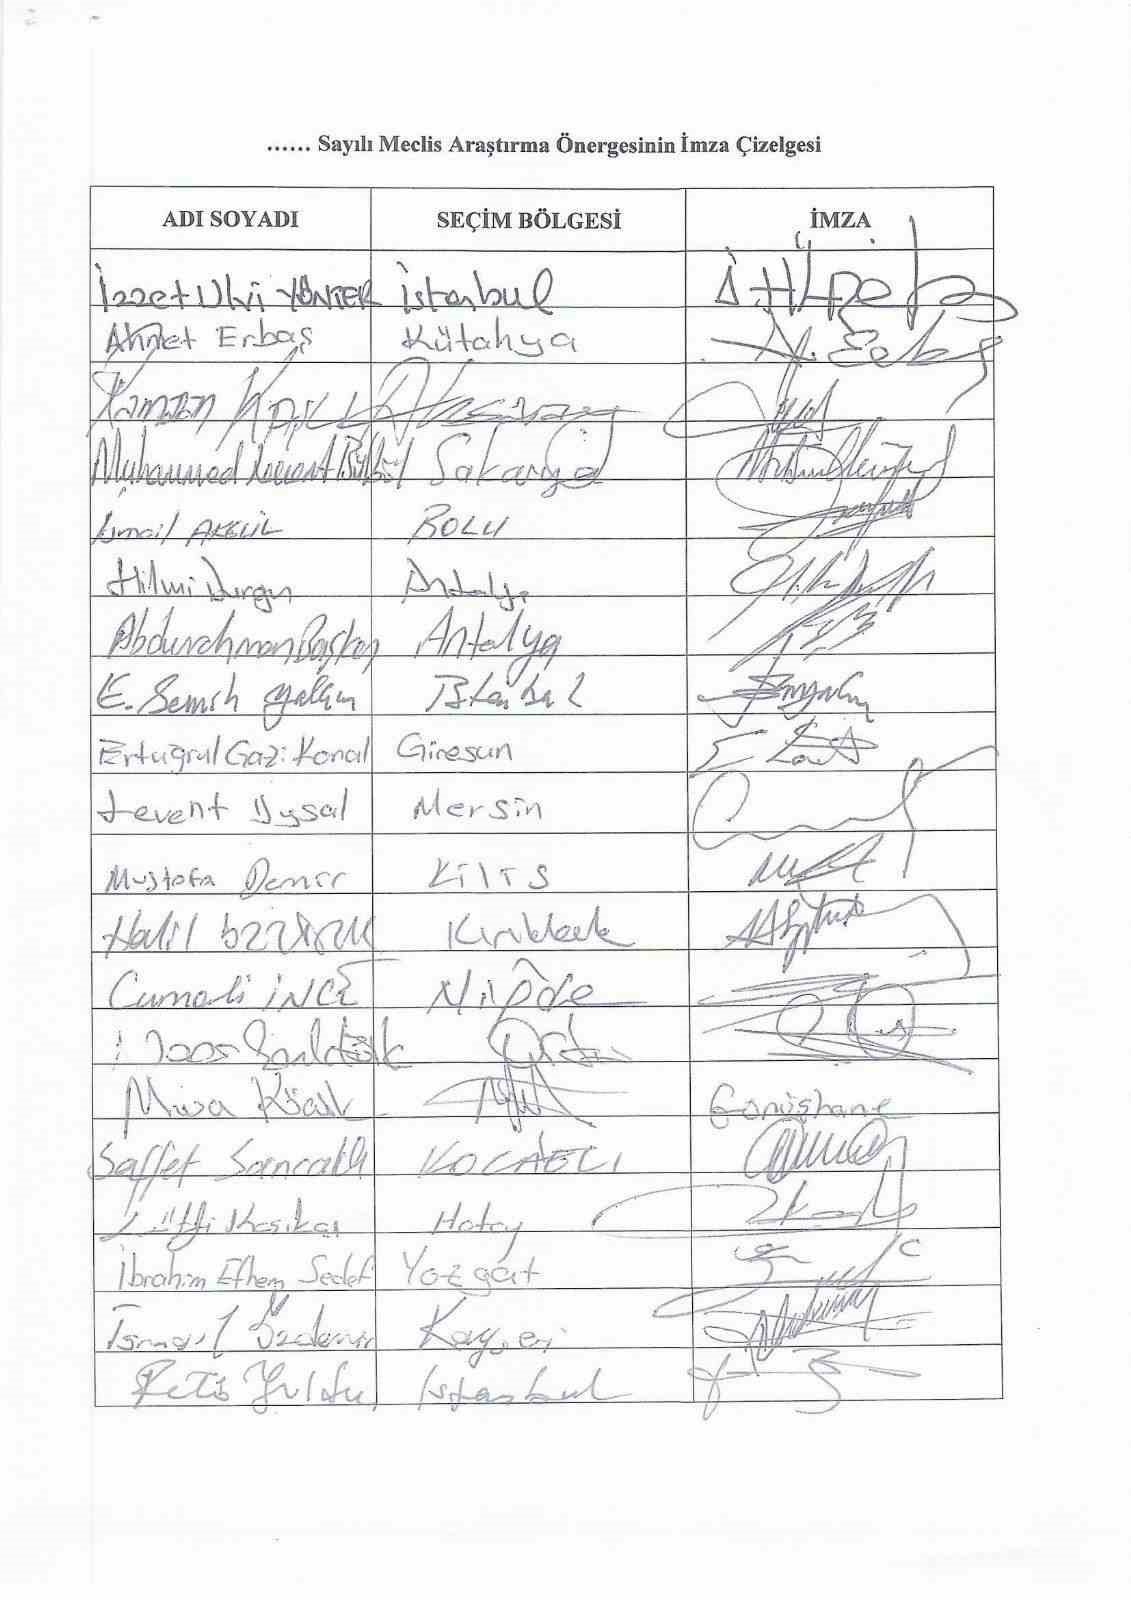 ...... Sayılı Meclis Araştırma Önergesinin İmza Çizelgesi
ADI SOYADI SEÇİM BÖLGESİ İMZA
İzzet Ulvi YÖNTER İstanbul
Ahmet Erbaş Kütahya
Ramazan Kaşlı Aksaray
Muhammed Levent Bülbül Sakarya
İsmail AKGÜL BOLU
Hilmi Durgun Antalya
Abdurrahman Başkan Antalya
E. Semih Yalçın İstanbul
Ertuğrul Gazi Konal Giresun
Levent Uysal Mersin
Mustafa Demir KiliS
Halil ÖZTÜRK Kırıkkale
Cumali İNCE Niğde
Ordu
Musa Küçük Gümüşhane
Saffet Sancaklı KOCAELİ
Lütfi Kaşıkçı Hatay
İbrahim Ethem Sedef Yozgat
İsmail Özdemir Kayseri
Feti Yıldız İstanbul